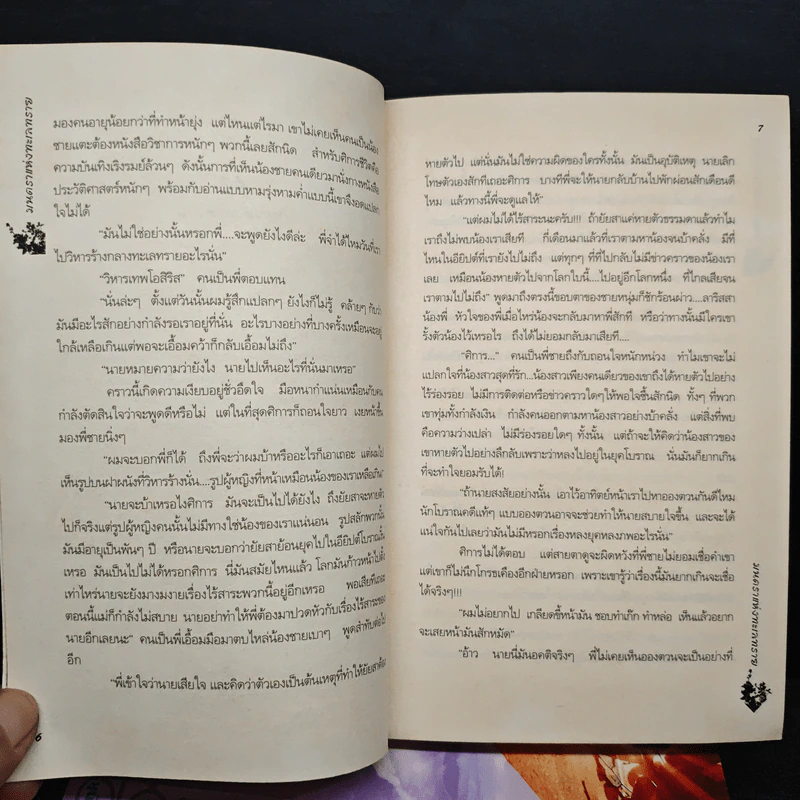 มนตราแห่งทะเลทราย
มองคนอายุน้อยกว่าที่ทำหน้ายุ่ง แต่ไหนแต่ไรมา เขาไม่เคยเห็นคนเป็นน้อง
ชายแตะต้องหนังสือวิชาการหนักๆ พวกนี้เลยสักนิด สำหรับศิการชีวิตคือ
ความบันเทิงเริงรมย์ล้วนๆ ดังนั้นการที่เห็นน้องชายคนเดียวมานั่งกางหนังสือ
ประวัติศาสตร์หนักๆ พร้อมกับอ่านแบบหามรุ่งหามค่ำแบบนี้เขาจึงอดแปลก
ใจไม่ได้
"มันไม่ใช่อย่างนั้นหรอกพี่....จะพูดยังไงดีล่ะ พี่จำได้ไหมวันที่เรา
ไปวิหารร้างกลางทะเลทรายอะไรนั่น"
"วิหารเทพโอสิริส" คนเป็นพี่ตอบแทน
"นั่นล่ะๆ ตั้งแต่วันนั้นผมรู้สึกแปลกๆ ยังไงก็ไม่รู้ คล้ายๆ กับว่า
มันมีอะไรสักอย่างกำลังรอเราอยู่ที่นั่น อะไรบางอย่างที่บางครั้งเหมือนจะอยู่
ใกล้เหลือเกินแต่พอจะเอื้อมคว้าก็กลับเอื้อมไม่ถึง"
"นายหมายความว่ายังไง นายไปเห็นอะไรที่นั่นมาเหรอ"
คราวนี้เกิดความเงียบอยู่ชั่วอึดใจ มือหนากำแน่นเหมือนกับคน
กำลังตัดสินใจว่าจะพูดดีหรือไม่ แต่ในที่สุดศิการก็ถอนใจยาว เงยหน้าขึ้น
มองพี่ชายนิ่งๆ
"ผมจะบอกพี่ก็ได้ ถึงพี่จะว่าผมบ้าหรืออะไรก็เอาเถอะ แต่ผมไป
เห็นรูปบนฝาผนังที่วิหารร้างนั่น....รูปผู้หญิงที่หน้าเหมือนน้องของเราเหลือเกิน"
"นายจะบ้าเหรอไงศิการ มันจะเป็นไปได้ยังไง ถึงยัยสาจะหายตัว
ไปก็จริงแต่รูปผู้หญิงคนนั้นไม่มีทางใช่น้องของเราแน่นอน รูปสลักพวกนั้น
มันมีอายุเป็นพันๆ ปี หรือนายจะบอกว่ายัยสาย้อนยุคไปในอียิปต์โบราณงั้น
เหรอ มันเป็นไปไม่ได้หรอกศิการ นี่มันสมัยไหนแล้ว โลกมันก้าวหน้าไปตั้ง
เท่าไหร่นายจะยังมางมงายเรื่องไร้สาระพวกนี้อยู่อีกเหรอ พอเสียทีเถอะ
ตอนนี้แม่ก็กำลังไม่สบาย นายอย่าทำให้พี่ต้องมาปวดหัวกับเรื่องไร้สาระของ
นายอีกเลยนะ" คนเป็นพี่เอื้อมมือมาตบไหล่น้องชายเบาๆ พูดสำทับต่อไป
อีก
"พี่เข้าใจว่านายเสียใจ และคิดว่าตัวเองเป็นต้นเหตุที่ทำให้ยัยสาต้อง
6
7
หายตัวไป แต่นั่นมันไม่ใช่ความผิดของใครทั้งนั้น มันเป็นอุบัติเหตุ นายเลิก
โทษตัวเองสักทีเถอะศิการ บางทีพี่จะให้นายกลับบ้านไปพักผ่อนสักเดือนดี
ไหม แล้วทางนี้พี่จะดูแลให้"
"แต่ผมไม่ได้ไร้สาระนะครับ!!! ถ้ายัยสาแค่หายตัวธรรมดาแล้วทำไม
เราถึงไม่พบน้องเราเสียที กี่เดือนมาแล้วที่เราตามหาน้องจนบ้าคลั่ง มีที่
ไหนในอียิปต์ที่เรายังไปไม่ถึง แต่ทุกๆ ที่ที่ไปกลับไม่มีข่าวคราวของน้องเรา
เลย เหมือนน้องหายตัวไปจากโลกใบนี้....ไปอยู่อีกโลกหนึ่ง ที่ไกลเสียจน
เราตามไปไม่ถึง" พูดมาถึงตรงนี้ขอบตาของชายหนุ่มก็ชักร้อนผ่าว....ลาริสสา
น้องพี่ หัวใจของพี่เมื่อไหร่น้องจะกลับมาหาพี่สักที หรือว่าทางนั้นมีใครเขา
รั้งตัวน้องไว้เหรอไร ถึงได้ไม่ยอมกลับมาเสียที....
"ศิการ..." คนเป็นพี่ชายถึงกับถอนใจหนักหน่วง ทำไมเขาจะไม่
แปลกใจที่น้องสาวสุดที่รัก...น้องสาวเพียงคนเดียวของเขาถึงได้หายตัวไปอย่าง
ไร้ร่องรอย ไม่มีการติดต่อหรือข่าวคราวใดๆให้พอใจชื้นสักนิด ทั้งๆ ที่พวก
เขาทุ่มทั้งกำลังเงิน กำลังคนออกตามหาน้องสาวอย่างบ้าคลั่ง แต่สิ่งที่พบ
คือความว่างเปล่า ไม่มีร่องรอยใดๆ ทั้งนั้น แต่ถ้าจะให้คิดว่าน้องสาวของ
เขาหายตัวไปอย่างลึกลับเพราะว่าหลงไปอยู่ในยุคโบราณ นั่นมันก็ยากเกิน
ที่จะทำใจยอมรับได้!
"ถ้านายสงสัยอย่างนั้น เอาไว้อาทิตย์หน้าเราไปหาอองตวนกันดีไหม
นักโบราณคดีแท้ๆ แบบอองตวนอาจจะช่วยทำให้นายสบายใจขึ้น และจะได้
แน่ใจกันไปเลยว่ามันไม่มีหรอกเรื่องหลงยุคหลงภพอะไรนั่น"
ศิการไม่ได้ตอบ แต่สายตาดูจะผิดหวังที่พี่ชายไม่ยอมเชื่อคำเขา
แต่เขาก็ไม่นึกโกรธเคืองอีกฝ่ายหรอก เพราะเขารู้ว่าเรื่องนี้มันยากเกินจะเชื่อ
ได้จริงๆ!!!
"ผมไม่อยากไป เกลียดขี้หน้ามัน ชอบทำเก๊ก ทำหล่อ เห็นแล้วอยาก
จะเสยหน้ามันสักหมัด"
"อ้าว นายนี่มันอคติจริงๆ พี่ไม่เคยเห็นอองตวนจะเป็นอย่างที่
มนตราแห่งทะเลทราย